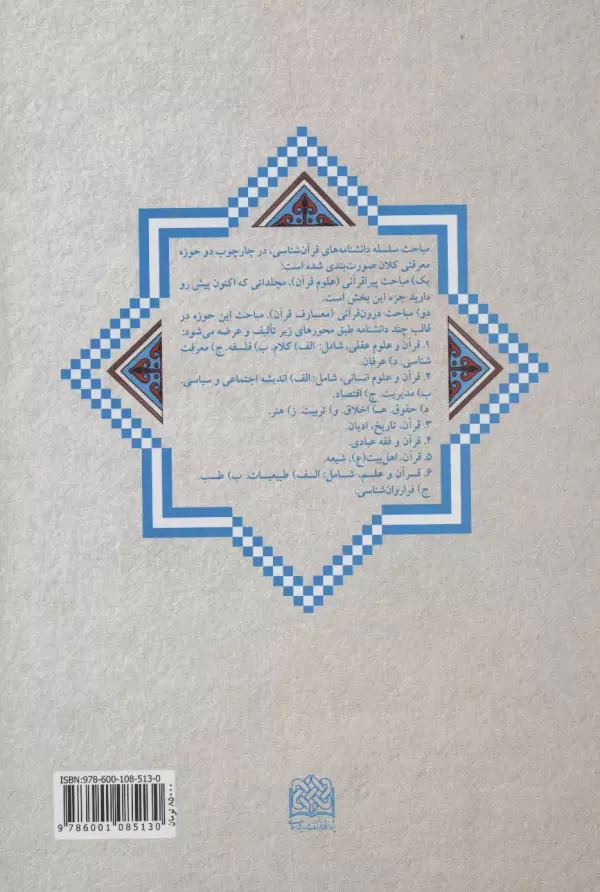 مباحث سلسله دانشنامه‌های قرآن‌شناسی، در چارچوب دو حوزه
معرفتی کلان صورت‌بندی شده است:
یک) مباحث پیراقرآنی (علوم قرآن). مجلداتی که اکنون پیش رو
دارید جزء این بخش است.
دو) مباحث درون‌قرآنی (معارف قرآن). مباحث این حوزه در
قالب چند دانشنامه طبق محورهای زیر تألیف و عرضه می‌شود:
۱. قرآن و علوم عقلی، شامل: الف) کلام. ب) فلسفه. ج) معرفت
شناسی. د) عرفان.
۲. قرآن و علوم انسانی، شامل: الف) اندیشه اجتماعی و سیاسی.
ب) مدیریت. ج) اقتصاد.
د) حقوق. هـ) اخلاق. و) تربیت. ز) هنر.
۳. قرآن، تاریخ، ادیان.
۴. قرآن و فقه عبادی.
۵. قرآن، اهل‌بیت(ع)، شیعه.
۶. قرآن و علم، شامل: الف) طبیعیات. ب) طب.
ج) فراروان‌شناسی.
ISBN:978-600-108-513-0
9 786001 085130
۸۵۰۰۰ تومان